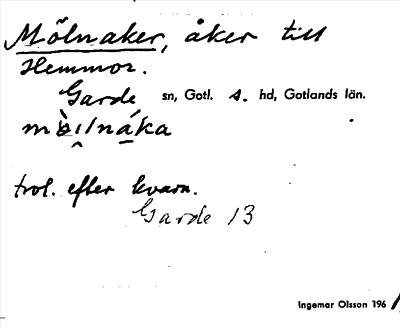 Mölnaker, åker till
Hemmor.
Garde sn, Gotl. s. hd, Gotlands län.
trol. efter kvarn.
Garde 13
Ingemar Olsson 196